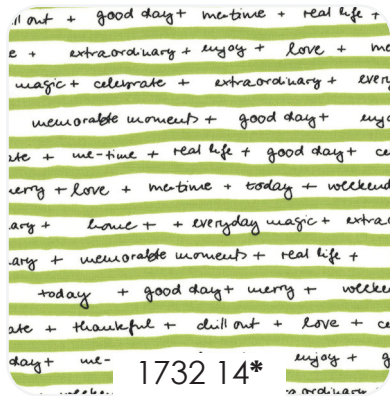 ll out + good day + me-time + real life +
e + extraordinary + enjoy + love + me
magic + celebrate + extraordinary + every
memorable moments + good day + enjo
ate + me-time + real life + good day + ce
merry + love + me-time + today + weekend
ary + home + + everyday magic + extrao
ary + memorable moments + real life +
today + good day + merry + weeke
ate + thankful + chill out + love + ce
day + me- enjoy + g
1732 14*